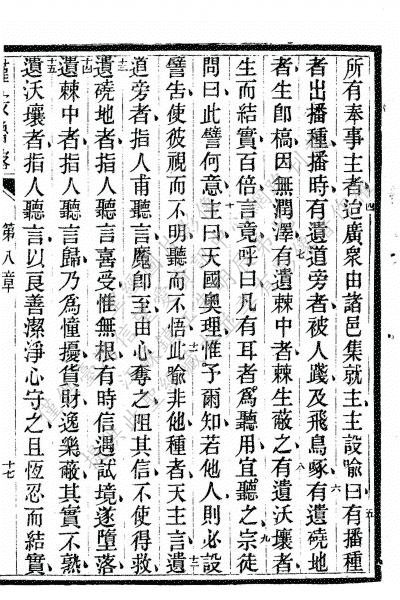 所有奉事主者迨廣衆由諸邑集就主主設喻曰有播種
者出播種播時有遺道旁者被人踐及飛鳥啄有遺磽地
者生卽槁因無潤澤有遺棘中者棘生蔽之有遺沃壤者
生而結實百倍言竟呼曰凡有耳者爲聽用宜聽之宗徒
問曰此譬何意主曰天國奧理惟予爾知若他人則必設
譬吿使彼視而不明聽而不悟此喻非他種者天主言遺
道旁者指人甫聽言魔卽至由心奪之阻其信不使得救
遺磽地者指人聽言喜受惟無根有時信遇試境遂墮落
遺棘中者指人聽言歸乃爲憧擾貨財逸樂蔽其實不熟
遺沃壤者指人聽言以良善潔淨心守之且恆忍而結實
第八章
十七
四
五
六
七
八
九
十
十一
十二
十三
十四
十五